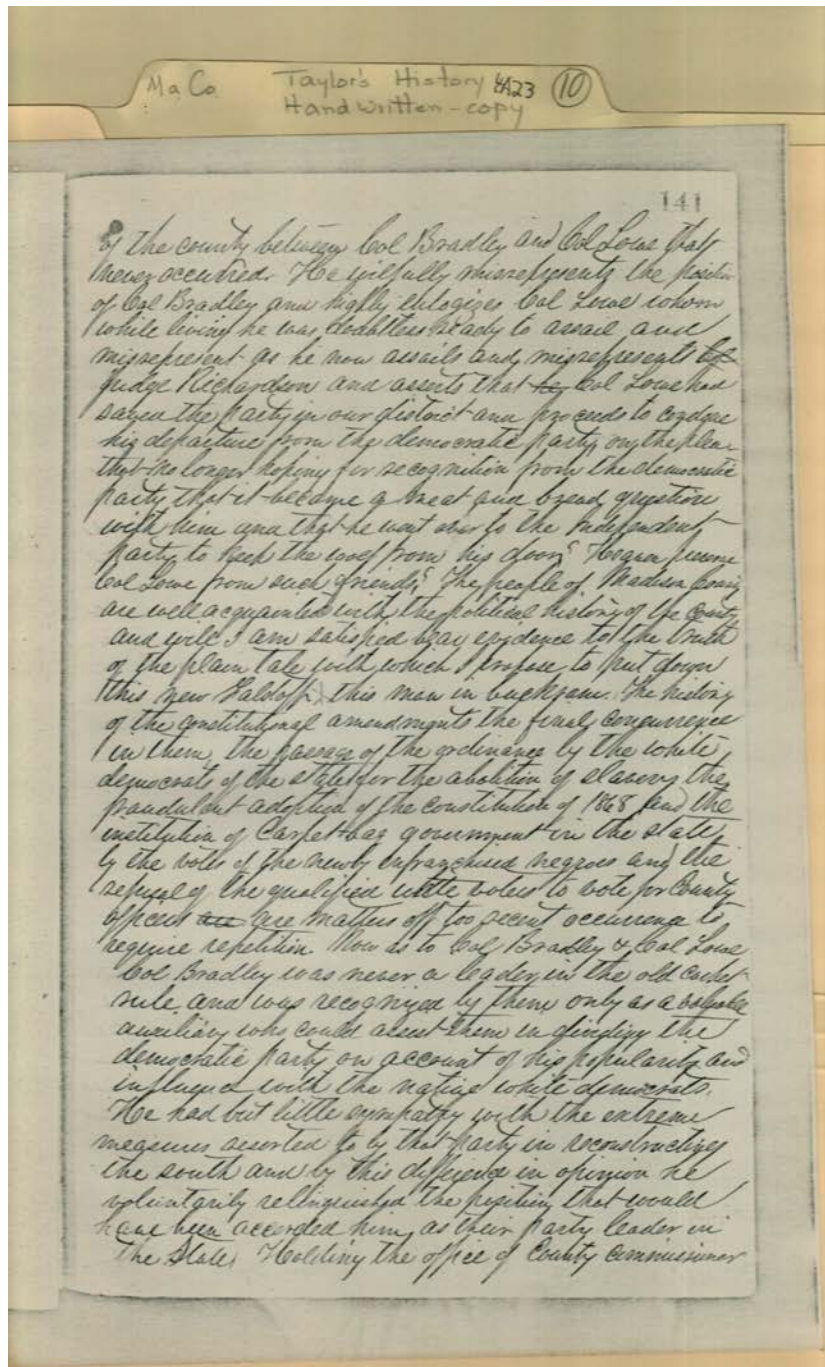 Ma Co. Taylor's History 4A23 10
Handwritten - copy
141
of the county between Col Bradley and Col Lowe that
never occurred. He wilfully misrepresents the position
of Col Bradley and highly eulogizes Col Lowe whom
while living he was doubtless ready to assail and
misrepresent as he now assails and misrepresents
Judge Richardson and asserts that he Col Lowe had
saved the party in our district and proceeds to
his departure from the democratic party, on the plea
that no longer hoping for recognition from the democratic
party that it became a meat and bread question
with him and that he went over to the Independent
party to keep the wolf from his door"
Col Lowe from such friends" The people of Madison County
are well acquainted with the political history of the County
and will I am satisfied bear evidence to the truth
of the plain tale with which I propose to put down
this new this man in buckram. The history
of the constitutional amendments the final concurrence
in them, the passage of the ordinance by the white
democrats of the state for the abolition of slavery the
fraudulent adoption of the constitution of 1868 and the
institution of Carpet-bag government in the state,
by the votes of the newly enfranchised negroes and the
refusal of the qualified white voters to vote for County
officers are are matters off too recent occurrence to
require repetition. Now as to Col Bradley & Col Lowe
Col Bradley was never a leader in the old
rule, and was recognized by them only as a valuable
auxiliary who could assist them in dividing the
democratic party on account of his popularity and
influence with the native white democrats.
He had but little sympathy with the extreme
measures resorted to by that party in reconstructing
the south and by this difference in opinion he
voluntarily relinquished the position that would
have been accorded him, as their party leader in
the State. Holding the office of County Commissioner